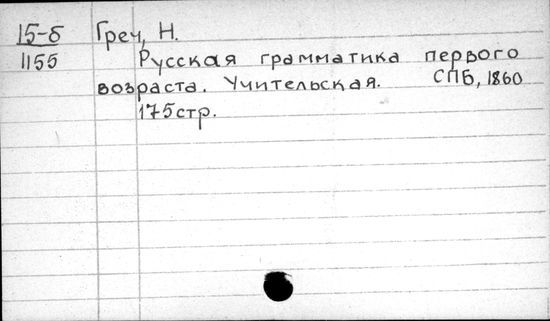 15-б Греч, Н.
1155 Русская грамматика первого
возраста. Учительская. СПБ, 1860
175стр.